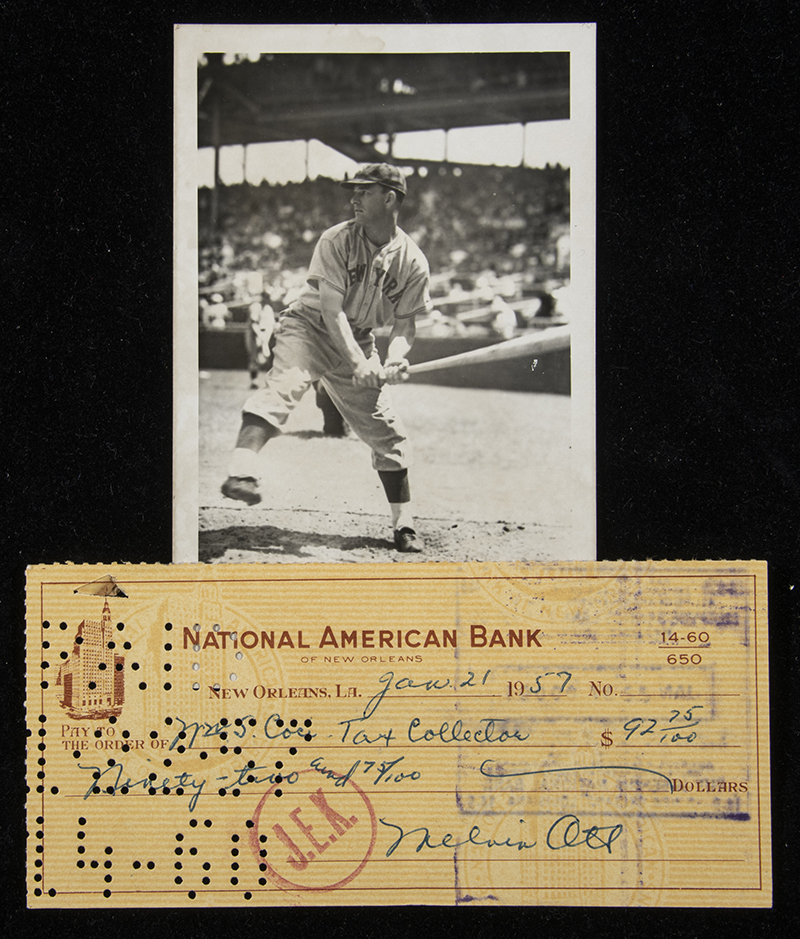 NEW YORK
NATIONAL AMERICAN BANK
OF NEW ORLEANS
14-60
650
NEW ORLEANS, LA. Jan. 21 1957 No.
PAY TO
THE ORDER OF S. Tax Collector $ 92 75/100
Ninety-two and 75/100 DOLLARS
J.E.K.
Melvin Ott
14-60